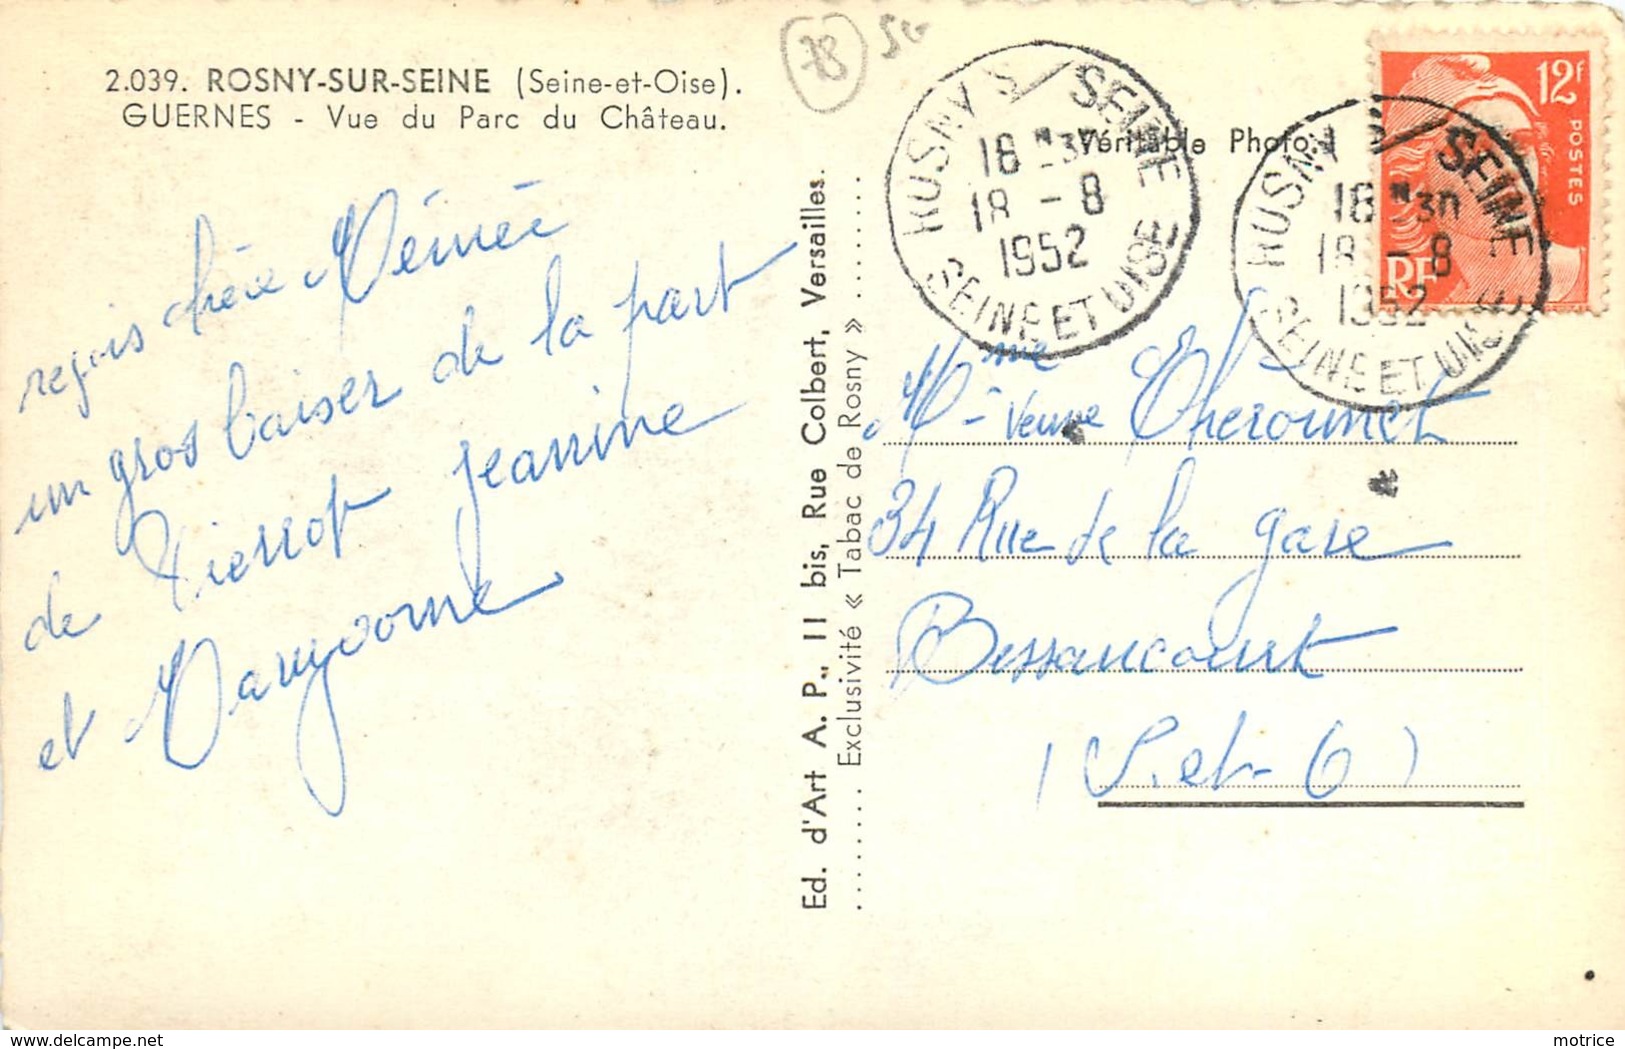 2.039. ROSNY-SUR-SEINE (Seine-et-Oise).
GUERNES - Vue du Parc du Château.
78
Véritable Photo
12F
POSTES
RF
ROSNY S/ SEINE
18 H 30
18 - 8
1952
SEINE ET OISE
ROSNY S/ SEINE
18 H 30
18 - 8
1952
SEINE ET OISE
reçois chère Mémée
un gros baiser de la part
de Pierrot Jeannine
et
Ed. d'Art A. P., 11 bis, Rue Colbert, Versailles.
Exclusivité « Tabac de Rosny »
Mme Veuve
34 Rue de la gare
Bessancourt
(S. et O)
motrice